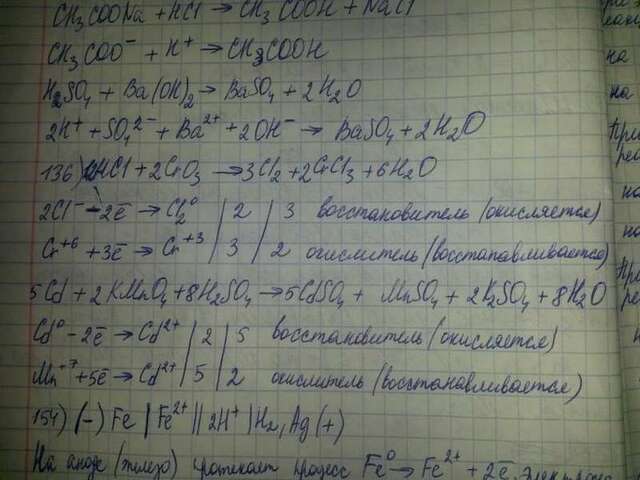 CH₃COONa + HCl → CH₃COOH + NaCl
CH₃COO⁻ + H⁺ → CH₃COOH
H₂SO₄ + Ba(OH)₂ → BaSO₄ + 2H₂O
2H⁺ + SO₄²⁻ + Ba²⁺ + 2OH⁻ → BaSO₄ + 2H₂O
136) HCl + 2CrO₃ → 3Cl₂ + 2CrCl₃ + 6H₂O
2Cl⁻ - 2ē → Cl₂⁰ | 2 | 3 восстановитель (окисляется)
Cr⁺⁶ + 3ē → Cr⁺³ | 3 | 2 окислитель (восстанавливается)
5Cd + 2KMnO₄ + 8H₂SO₄ → 5CdSO₄ + MnSO₄ + 2K₂SO₄ + 8H₂O
Cd⁰ - 2ē → Cd²⁺ | 2 | 5 восстановитель (окисляется)
Mn⁺⁷ + 5ē → Cd²⁺ | 5 | 2 окислитель (восстанавливается)
154) (-) Fe | Fe²⁺ || 2H⁺ | H₂, Ag (+)
На аноде (железо) протекает процесс Fe⁰ → Fe²⁺ + 2ē.
на
на